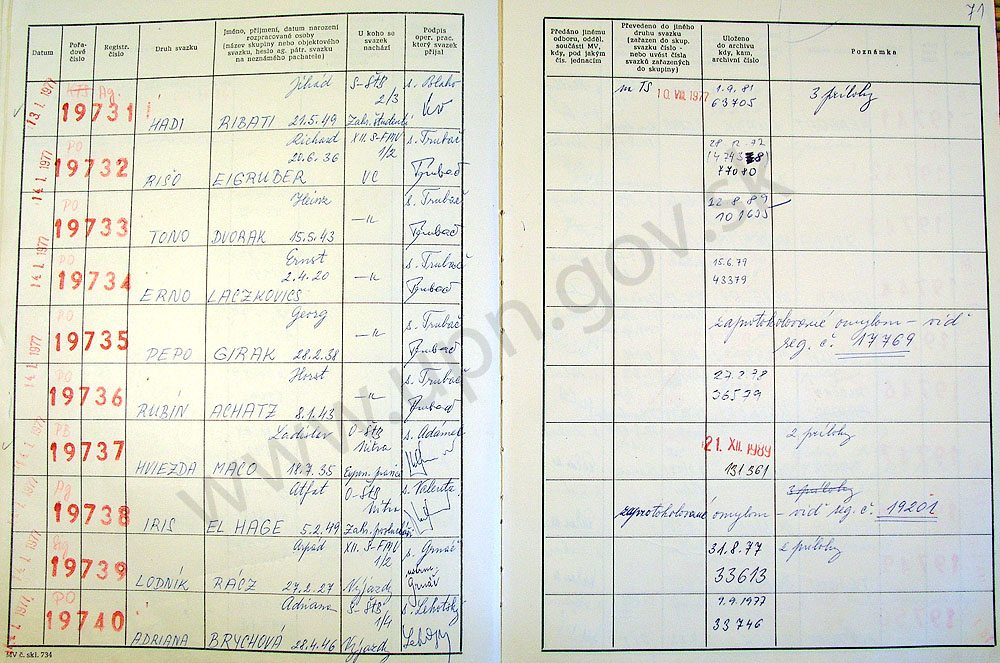 71
Datum
Pořa-
dové
číslo
Registr.
číslo
Druh svazku
Jméno, příjmení, datum narození
rozpracované osoby
(název skupiny nebo objektového
svazku, heslo ag. pátr. svazku
na neznámého pachatele)
U koho se
svazek
nachází
Podpis
oper. prac.
který svazek
přijal
Předáno jinému
odboru, odděl.
součásti MV,
kdy, pod jakým
čís. jednacím
Převedeno do jiného
druhu svazku
(zařazen do skup.
svazku číslo -
nebo uvést čísla
svazků zařazených
do skupiny)
Uloženo
do archivu
kdy, kam,
archivní číslo
Poznámka
13. I. 1977 Ag. Jihád S-ŠtB s. Blaho
19731 2/3
HADI RIBATI 21.5.49 Zahr. študenti
na TS 10. VIII. 1977 1.9.81 3 prílohy
63705
14. I. 1977 PO Richard XII. S-FMV s. Trubač
19732 20.6.36 1/2 Trubač
RIŠO EIGRUBER VC
77080
14. I. 1977 PO Heinz s. Trubač
19733 —„— Trubač
TONO DVORAK 15.5.43
22.8.89
101635
14. I. 1977 PO Ernst s. Trubač
19734 2.4.20 —„— Trubač
ERNO LACZKOVICS
15.6.79
43379
14. I. 1977 PO Georg s. Trubač
19735 —„— Trubač
PEPO GIRAK 28.2.38
zaprotokolované omylom - viď
seg. č. 17769
14. I. 1977 PO Horst s. Trubač
19736 —„— Trubač
RUBÍN ACHATZ 8.1.43
27.2.78
36579
14. I. 1977 PB Ladislav O-ŠtB s. Adámek
19737 Nitra
HVIEZDA MACO 18.7.35
21. XII. 1989 2 prílohy
131361
14. I. 1977 Ag Atfat O-ŠtB s. Valenta
19738 Nitra
IRIS EL HAGE 5.2.49 Zahr. poslucháči
3 prílohy
zaprotokolované omylom - viď seg. č. 19201
14. I. 1977 Ag Arpád XII. S-FMV s. Grnáč
19739 1/2
LODNÍK RÁCZ 27.2.27 Výjazdy Grnáč
31.8.77 2 prílohy
33613
14. I. 1977 PO Adriana S-ŠtB s. Lehotský
19740 1/4
ADRIANA BRYCHOVÁ 28.4.46 Výjazdy
7.9.1977
33746
MV č. skl. 734
www.upn.gov.sk